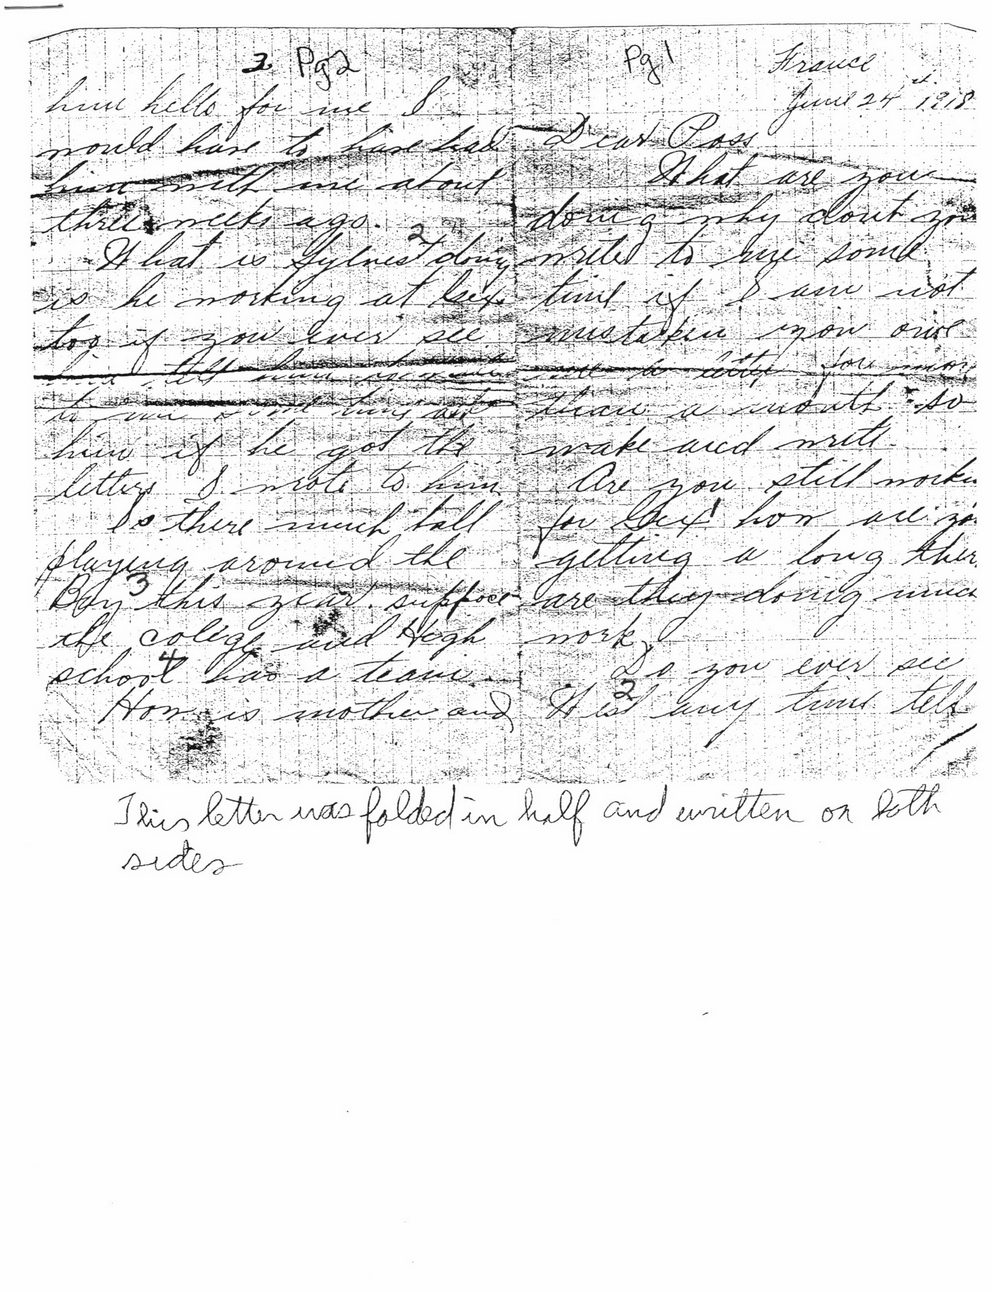 Pg 1
France
June 24 1918
Dear Poss
What are you
doing why dont yo
write to me some
time if I am not
mistaken you owe
me a letter for mor
than a month so
wake and write
Are you still workin
for Geix1 how are yo
getting a long ther
are they doing much
work,
Do you ever see
Wes2 any time tell
2 Pg 2
him hello for me I
would have to have had
him with me about
three weeks ago.
What is Sylvest2 doing
is he working at Geix
too if you ever see
him tell him
to me some time ask
him if he got the
letters I wrote to him
Is there much ball
playing around the
Bay3 this year. suppose
the colege and High
school4 has a team.
How is mother and
This letter was folded in half and written on both
sides